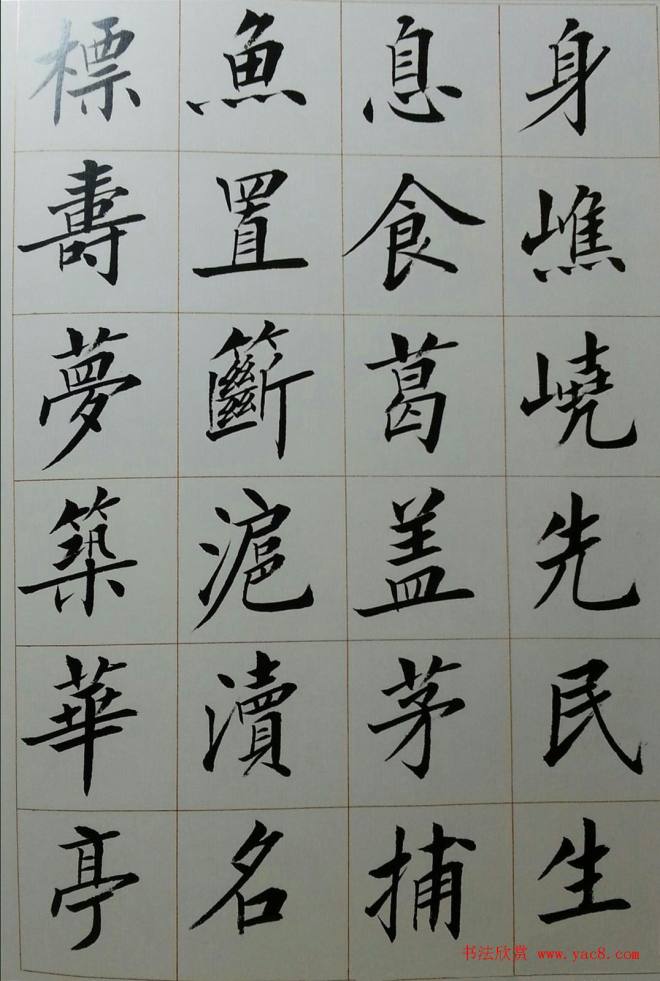 身嶕嶢先民生
息食葛盖茅捕
魚置籪滬瀆名
標壽夢築華亭
书法欣赏 www.yac8.com